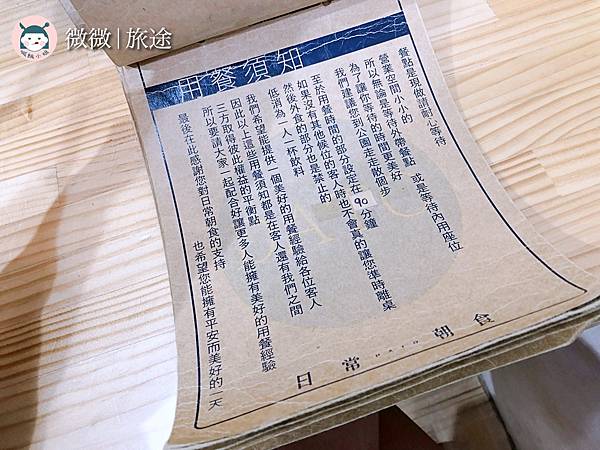 微微|旅途
用餐須知
餐點是現做請耐心等待
營業空間小小的
所以無論是等待外帶餐點 或是等待內用座位
為了讓你等待的時間更美好
我們建議您到公園走走散個步
至於用餐時間的部分設定在90分鐘
如果沒有其他候位的客人時也不會真的讓您準時離桌
然後外食的部分也是禁止的
低消為一人一杯飲料
我們希望能提供一個美好的用餐經驗給各位客人
因此以上這些用餐須知都是在客人還有我們之間
三方取得彼此權益的平衡點
所以要請大家一起配合好讓更多人能擁有美好的用餐經驗
最後在此感謝您對日常朝食的支持
也希望您能擁有平安而美好的一天
日常朝食